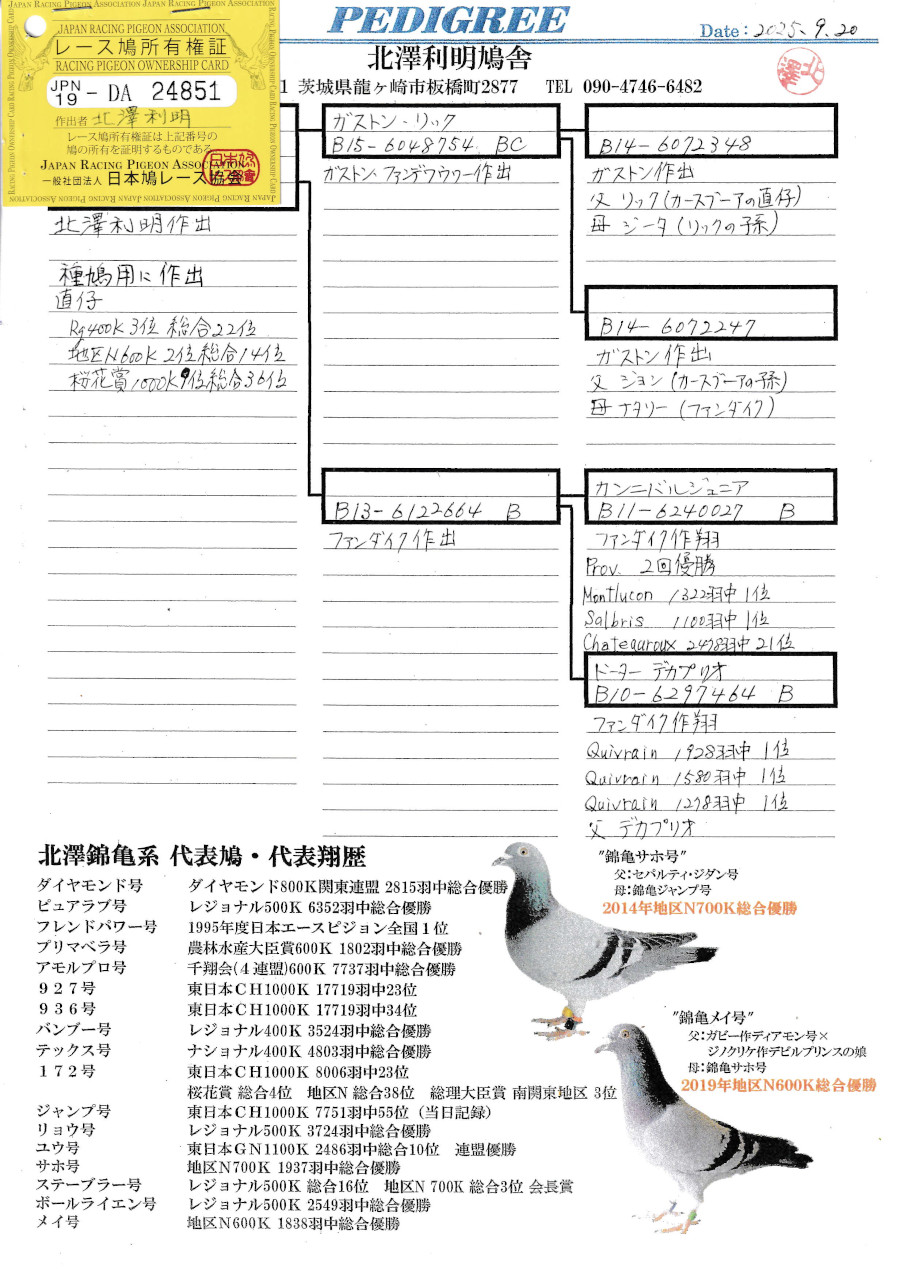 JAPAN RACING PIGEON ASSOCIATION
レース鳩所有権証
RACING PIGEON OWNERSHIP CARD
JPN 19 - DA 24851
作出者 北澤利明
レース鳩所有権証は上記番号の
鳩の所有を証明するものである
JAPAN RACING PIGEON ASSOCIATION
一般社団法人 日本鳩レース協会
PEDIGREE
Date : 2025.9.20
北澤利明鳩舎
北澤
1 茨城県龍ヶ崎市板橋町2877 TEL 090-4746-6482
北澤利明作出
種鳩用に作出
直仔
Rg400K 3位 総合22位
地区N600K 2位総合14位
桜花賞1000K9位総合36位
ガストン・リック
B15-6048754 BC
ガストン・ファンデワウワー作出
B13-6122664 B
ファンダイク作出
B14-6072348
ガストン作出
父 リック(カースブーアの直仔)
母 ジータ(リックの子系)
B14-6072247
ガストン作出
父 ジョン(カースブーアの子系)
母 ナタリー(ファンダイク)
カンニバルジュニア
B11-6240027 B
ファンダイク作翔
Prov. 2回優勝
Montlucon 1322羽中 1位
Salbris 1100羽中 1位
Chateauroux 2478羽中 21位
ドーター デカプリオ
B10-6297464 B
ファンダイク作翔
Quivrain 1928羽中 1位
Quivrain 1580羽中 1位
Quivrain 1278羽中 1位
父 デカプリオ
北澤錦亀系 代表鳩・代表翔歴
ダイヤモンド号 ダイヤモンド800K関東連盟 2815羽中総合優勝
ピュアラブ号 レジョナル500K 6352羽中総合優勝
フレンドパワー号 1995年度日本エースピジョン全国1位
プリマベラ号 農林水産大臣賞600K 1802羽中総合優勝
アモルプロ号 千翔会(4連盟)600K 7737羽中総合優勝
927号 東日本CH1000K 17719羽中23位
936号 東日本CH1000K 17719羽中34位
バンブー号 レジョナル400K 3524羽中総合優勝
テックス号 ナショナル400K 4803羽中総合優勝
172号 東日本CH1000K 8006羽中23位
桜花賞 総合4位 地区N 総合38位 総理大臣賞 南関東地区 3位
ジャンプ号 東日本CH1000K 7751羽中55位(当日記録)
リョウ号 レジョナル500K 3724羽中総合優勝
ユウ号 東日本GN1100K 2486羽中総合10位 連盟優勝
サホ号 地区N700K 1937羽中総合優勝
ステーブラー号 レジョナル500K 総合16位 地区N 700K 総合3位 会長賞
ボールライエン号 レジョナル500K 2549羽中総合優勝
メイ号 地区N600K 1838羽中総合優勝
"錦亀サホ号"
父:セパルティ・ジダン号
母:錦亀ジャンプ号
2014年地区N700K総合優勝
"錦亀メイ号"
父:ガビー作ディアモン号×
ジノクリケ作デビルプリンスの娘
母:錦亀サホ号
2019年地区N600K総合優勝